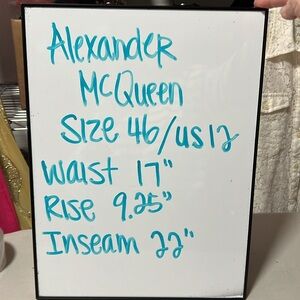 Alexander
McQueen
Size 46/us12
Waist 17"
Rise 9.25"
Inseam 22"